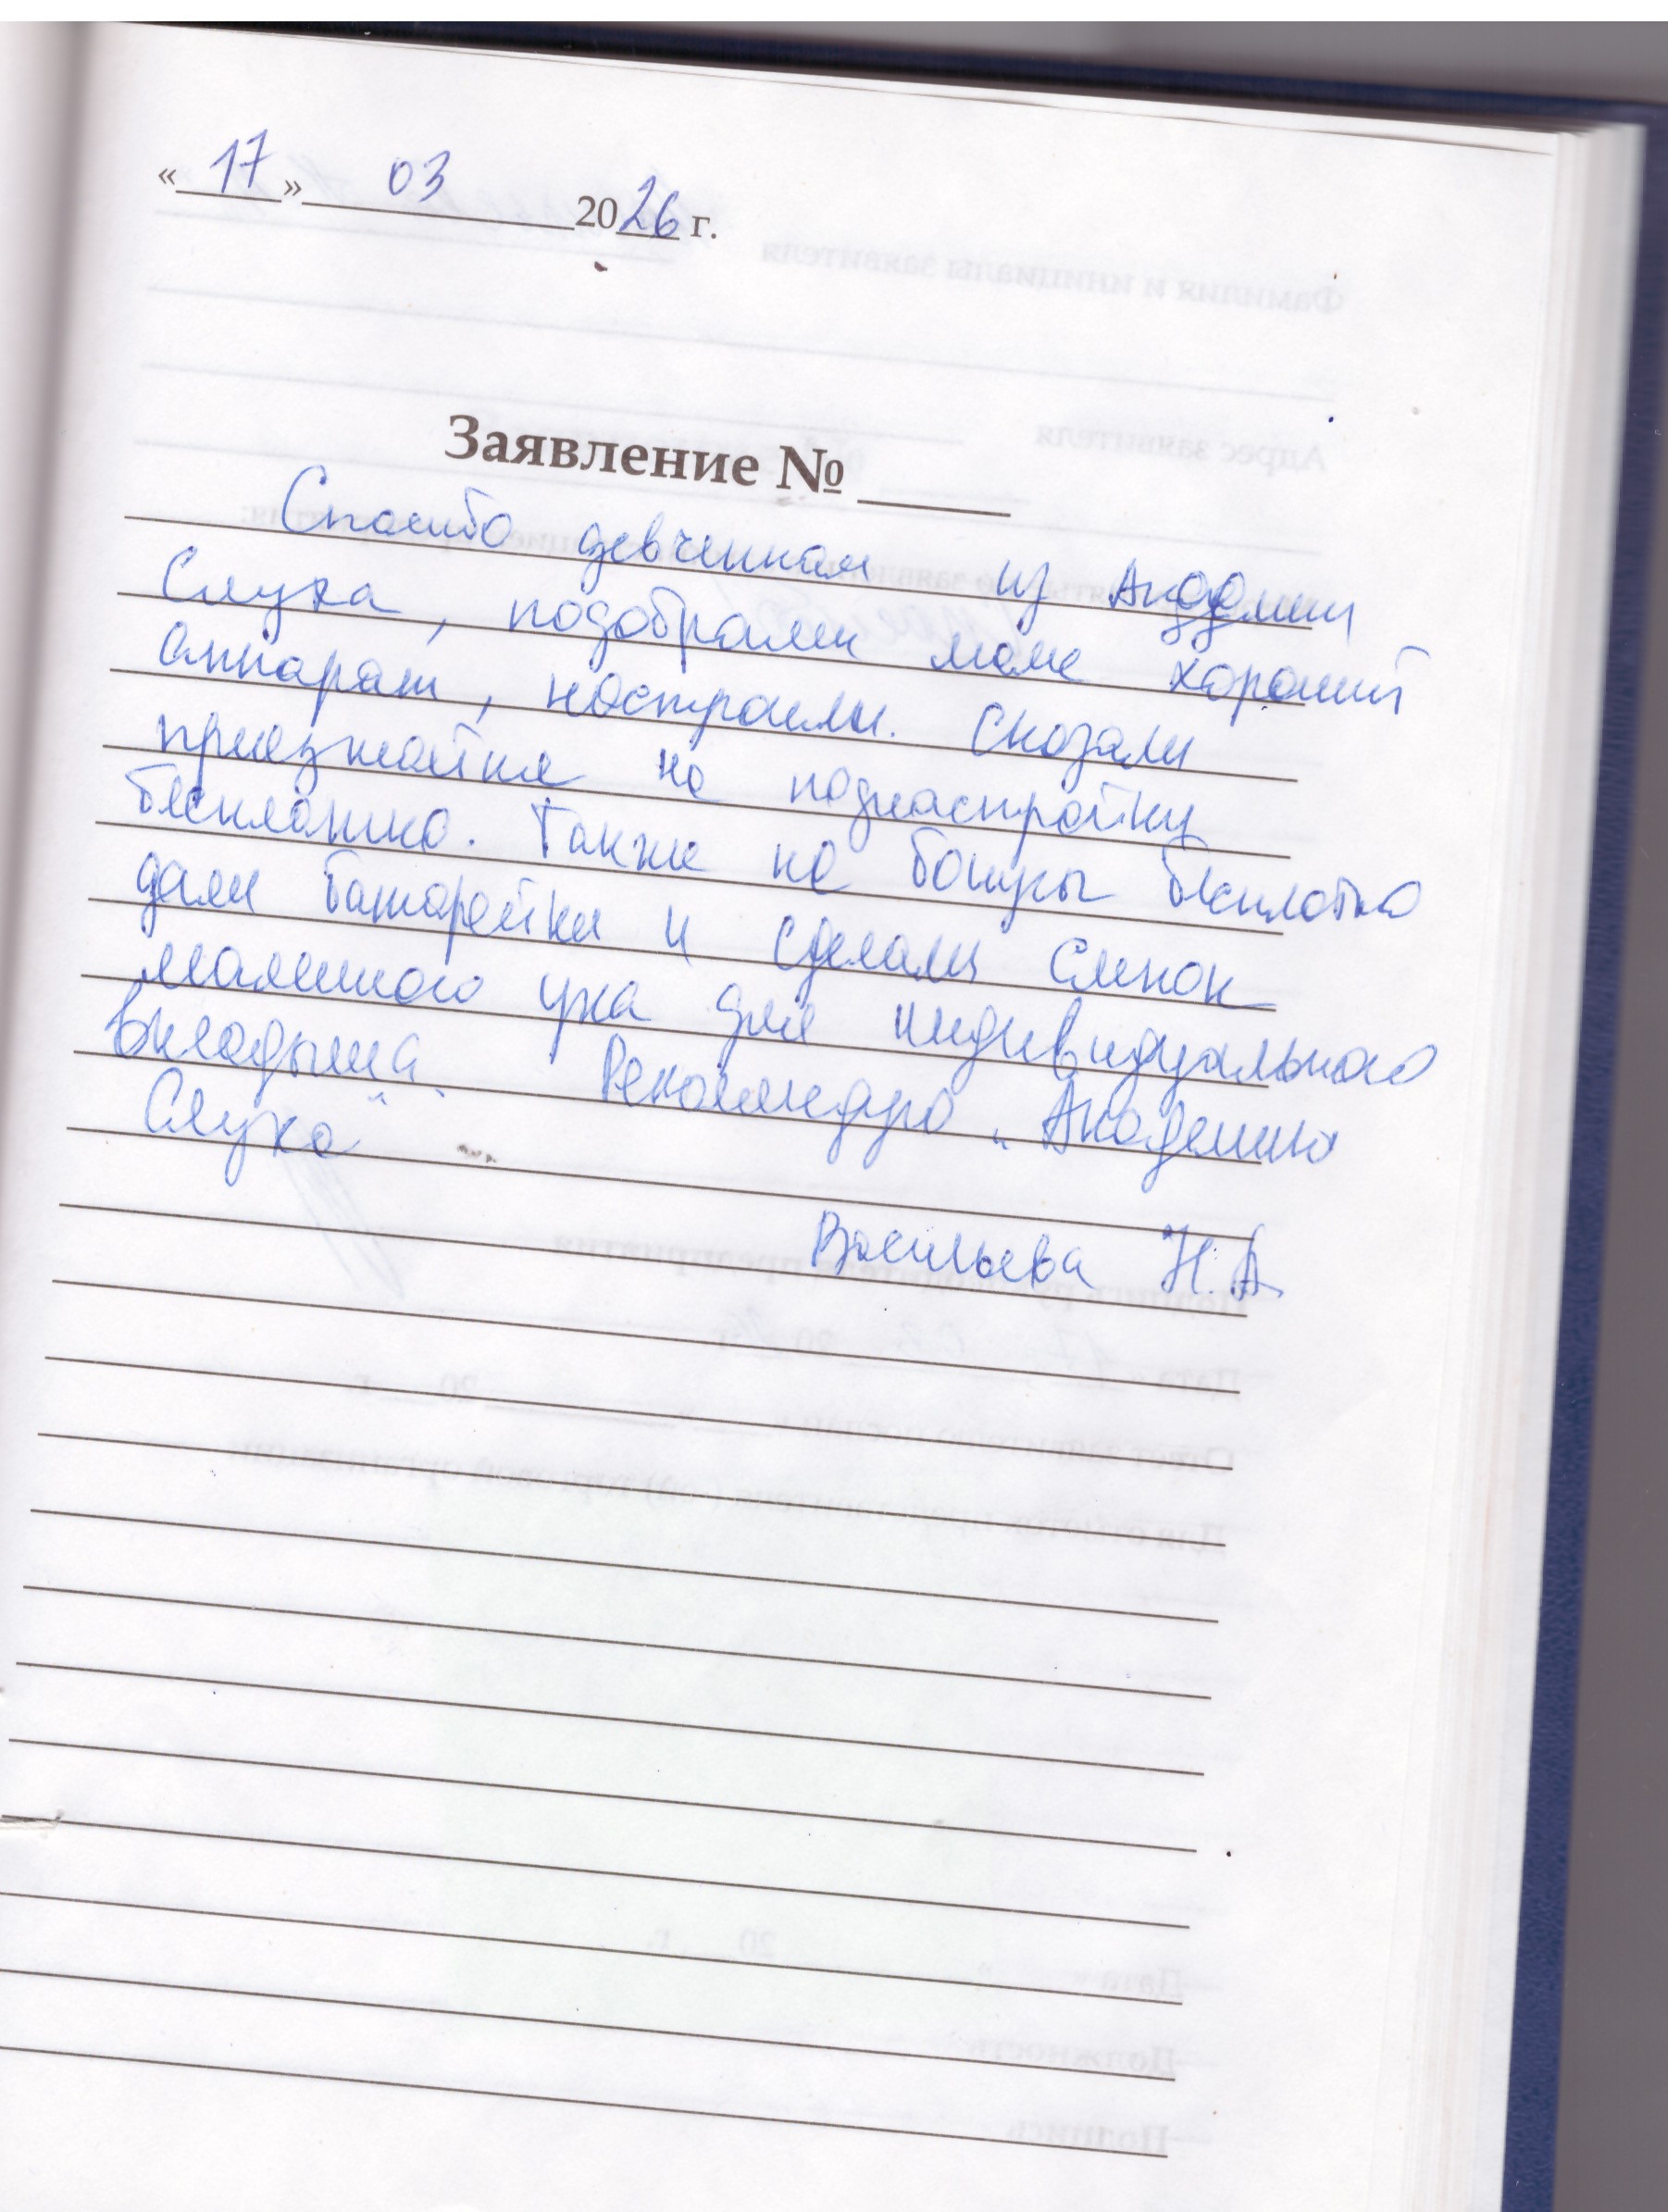 «17» 03 2026 г.
Заявление №
Спасибо девченкам из Академии
Слуха, подобрали маме хороший
аппарат, настроили. Сказали
приезжайте на поднастройку
бесплатно. Также на бонусы бесплатно
дали батарейки и сделали слепок
маминого уха для индивидуального
вкладыша. Рекомендую "Академию
Слуха"
Васильева Н.А